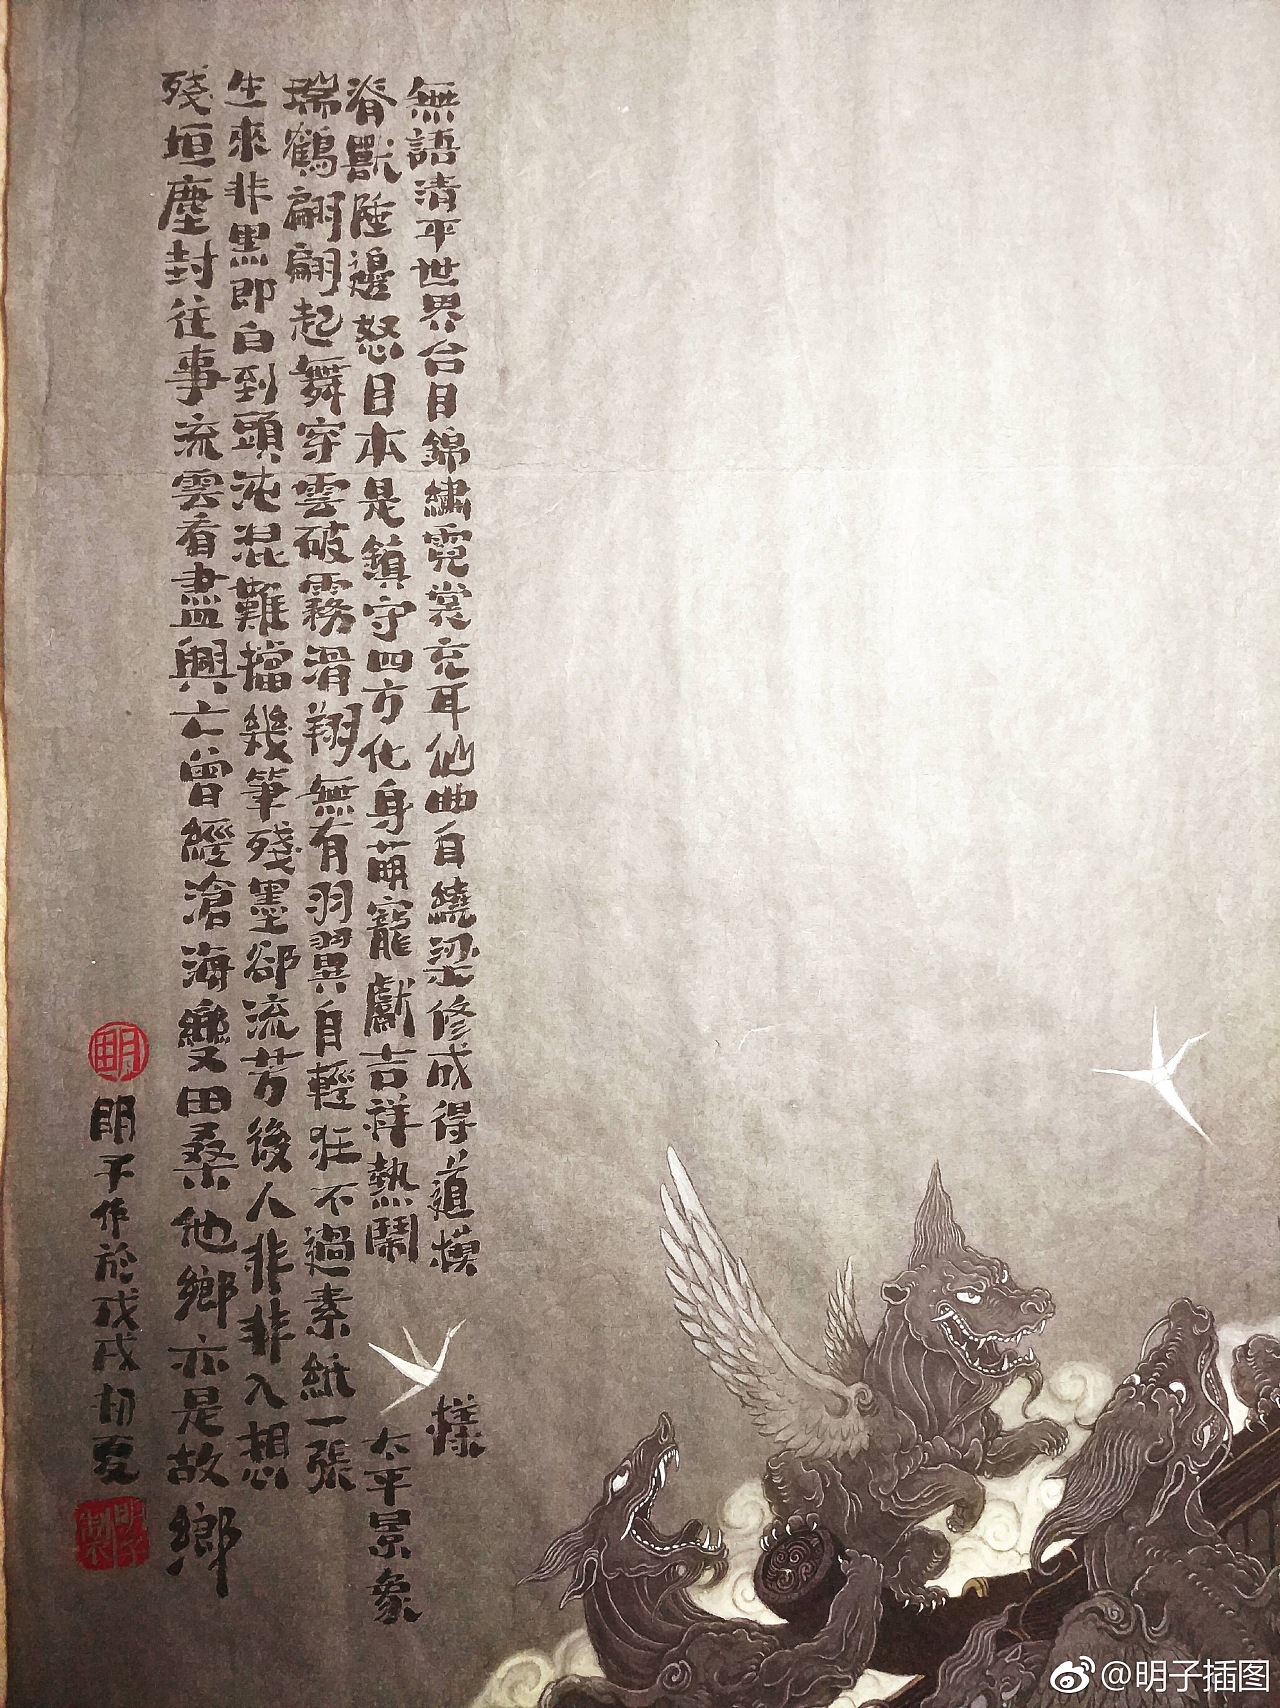 無語清平世界台目錦繡霓裳充耳仙曲自繞梁修成得道模樣
脊獸陲邊怒目本是鎮守四方化身萌寵獻吉祥熱鬧太平景象
瑞鶴翩翩起舞穿雲破霧滑翔無有羽翼自輕狂不過素紙一張
生來非黑即白到頭沌混難擋幾筆殘墨卻流芳後人非非入想
殘垣塵封往事流雲看盡興亡曾經滄海變田桑他鄉亦是故鄉
明
明子作於戊戌初夏
明子製
@明子插图